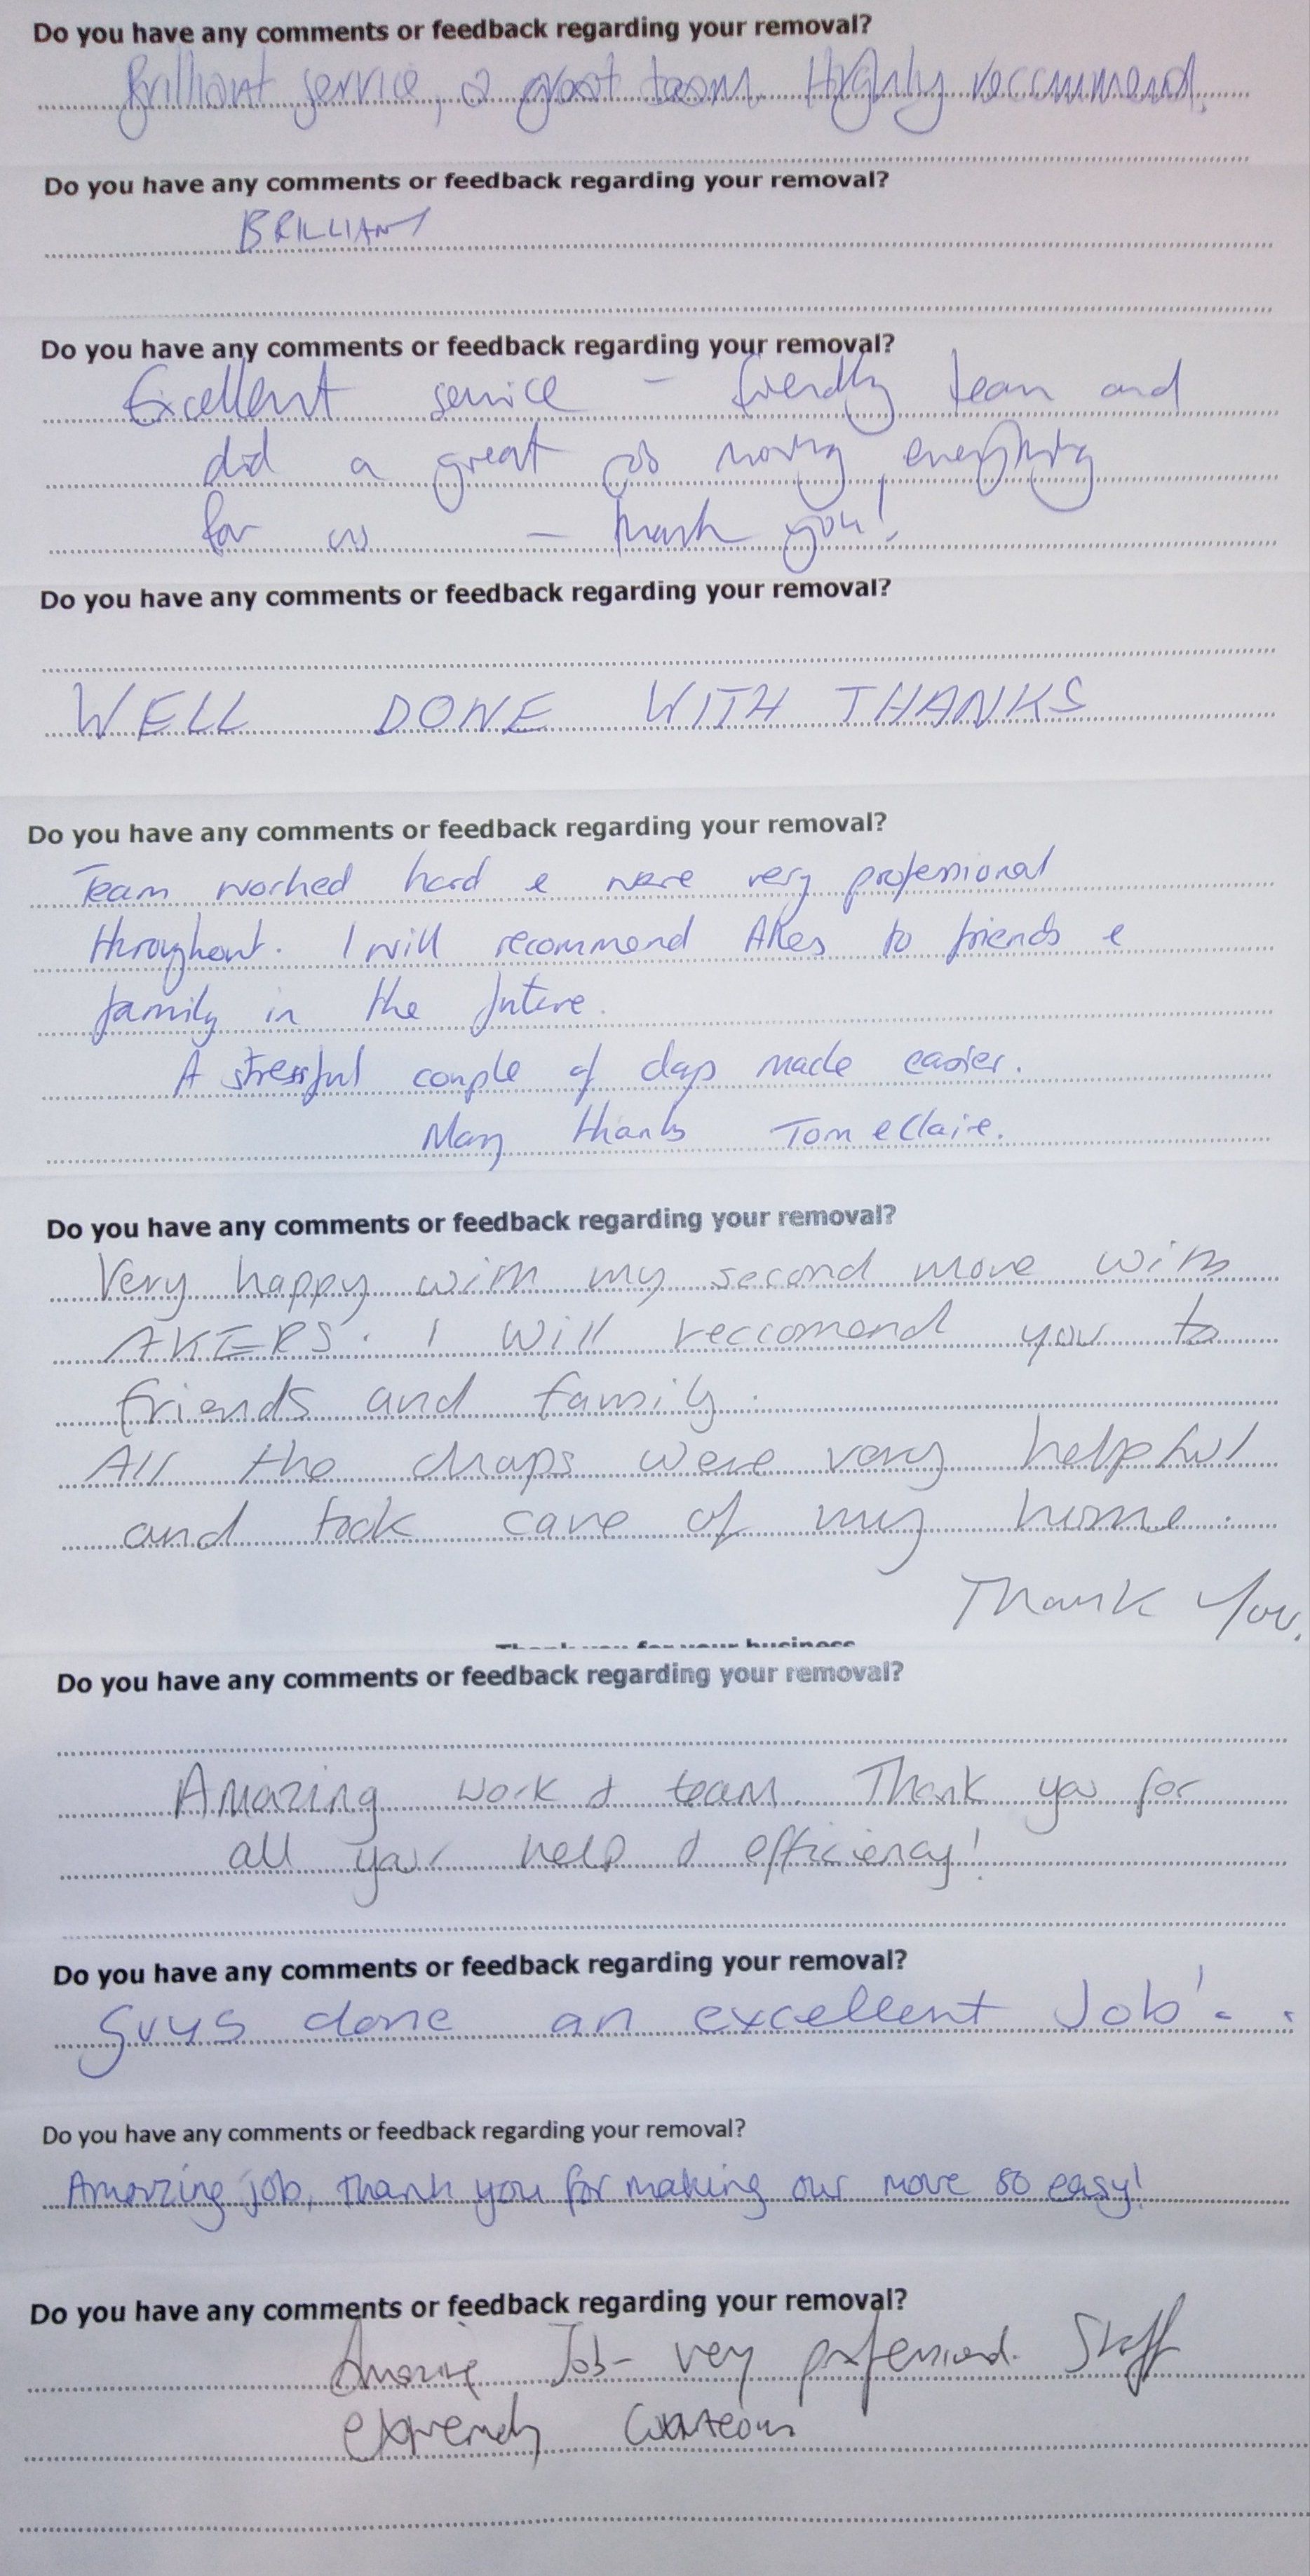 Do you have any comments or feedback regarding your removal?
Brilliant service, a great team. Highly reccommend.
Do you have any comments or feedback regarding your removal?
BRILLIANT
Do you have any comments or feedback regarding your removal?
Excellent service - friendly team and
did a great job moving everything
for us - thank you!
Do you have any comments or feedback regarding your removal?
WELL DONE WITH THANKS
Do you have any comments or feedback regarding your removal?
Team worked hard & were very professional
throughout. I will recommend Akers to friends &
family in the future.
A stressful couple of days made easier.
Many thanks Tom & Claire.
Do you have any comments or feedback regarding your removal?
Very happy with my second move with
AKERS. I will reccomend you to
friends and family.
All the chaps were very helpful
and took care of my home.
Thank You.
Thank you for your business
Do you have any comments or feedback regarding your removal?
Amazing work & team. Thank you for
all your help & efficiency!
Do you have any comments or feedback regarding your removal?
Guys done an excellent Job!
Do you have any comments or feedback regarding your removal?
Amazing job, thank you for making our move so easy!
Do you have any comments or feedback regarding your removal?
Amazing Job - very professional. Staff
extremely courteous